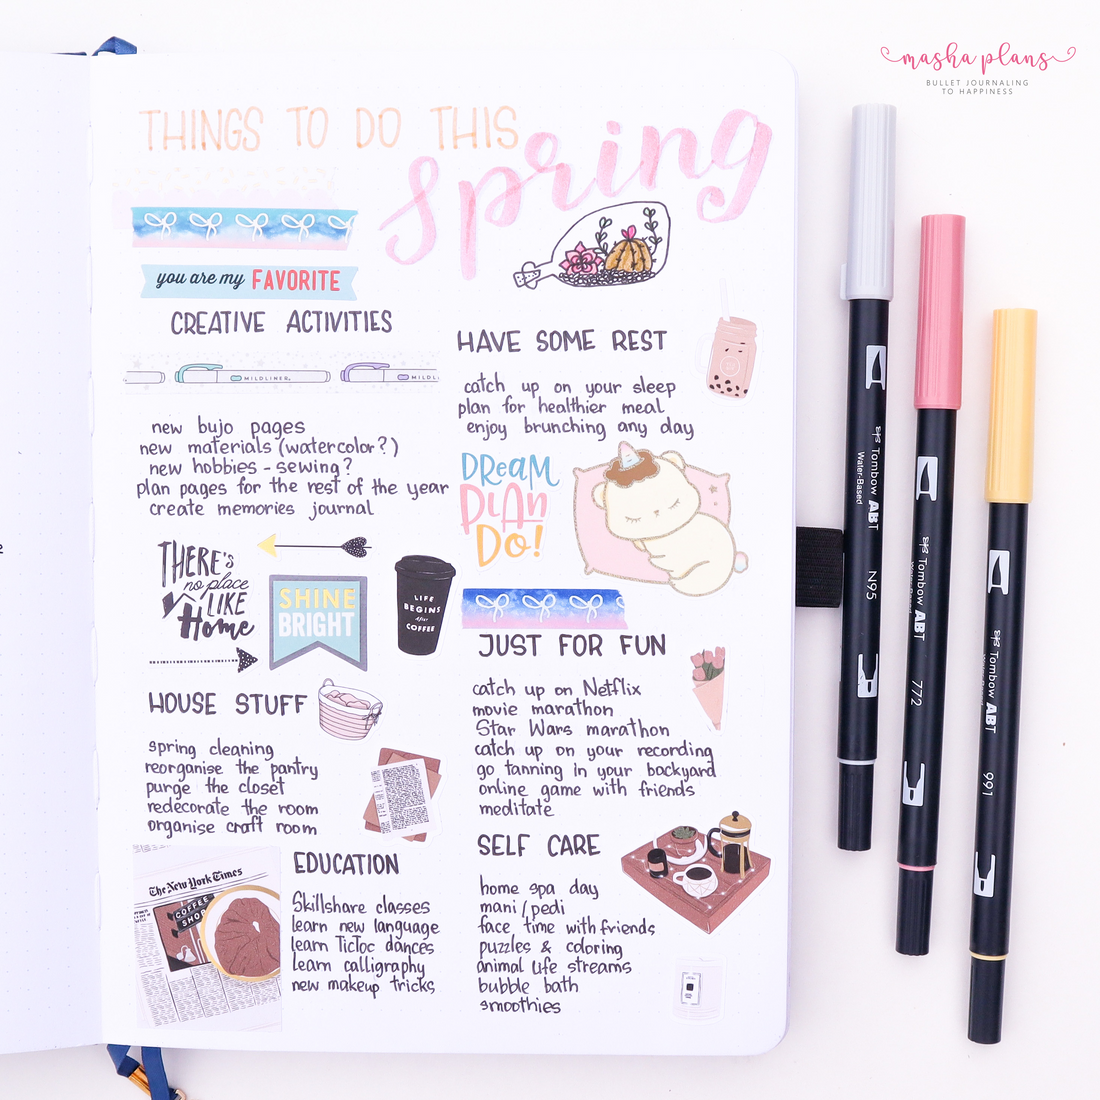 masha plans
BULLET JOURNALING
TO HAPPINESS
THINGS TO DO THIS
Spring
you are my FAVORITE
CREATIVE ACTIVITIES
MILDLINER
MILDL
new bujo pages
new materials (watercolor?)
new hobbies - sewing?
plan pages for the rest of the year
create memories journal
THERE'S
no place
LIKE
Home
SHINE
BRIGHT
LIFE
BEGINS
After
COFFEE
HOUSE STUFF
spring cleaning
reorganise the pantry
purge the closet
redecorate the room
organise craft room
The New York Times
COFFEE
SHOP
EDUCATION
Skillshare classes
learn new language
learn TicToc dances
learn calligraphy
new makeup tricks
HAVE SOME REST
catch up on your sleep
plan for healthier meal
enjoy brunching any day
DREAM
PLAN
DO!
JUST FOR FUN
catch up on Netflix
movie marathon
Star Wars marathon
catch up on your recording
go tanning in your backyard
online game with friends
meditate
SELF CARE
home spa day
mani/pedi
face time with friends
puzzles & coloring
animal life streams
bubble bath
smoothies
Tombow ABT
Water-Based
N95
Tombow ABT
772
Tombow ABT
991